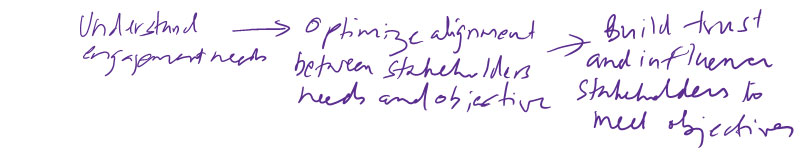 Understand
engagement needs
→ Optimize alignment
between stakeholders
needs and objective
→ Build trust
and influence
stakeholders to
meet objectives